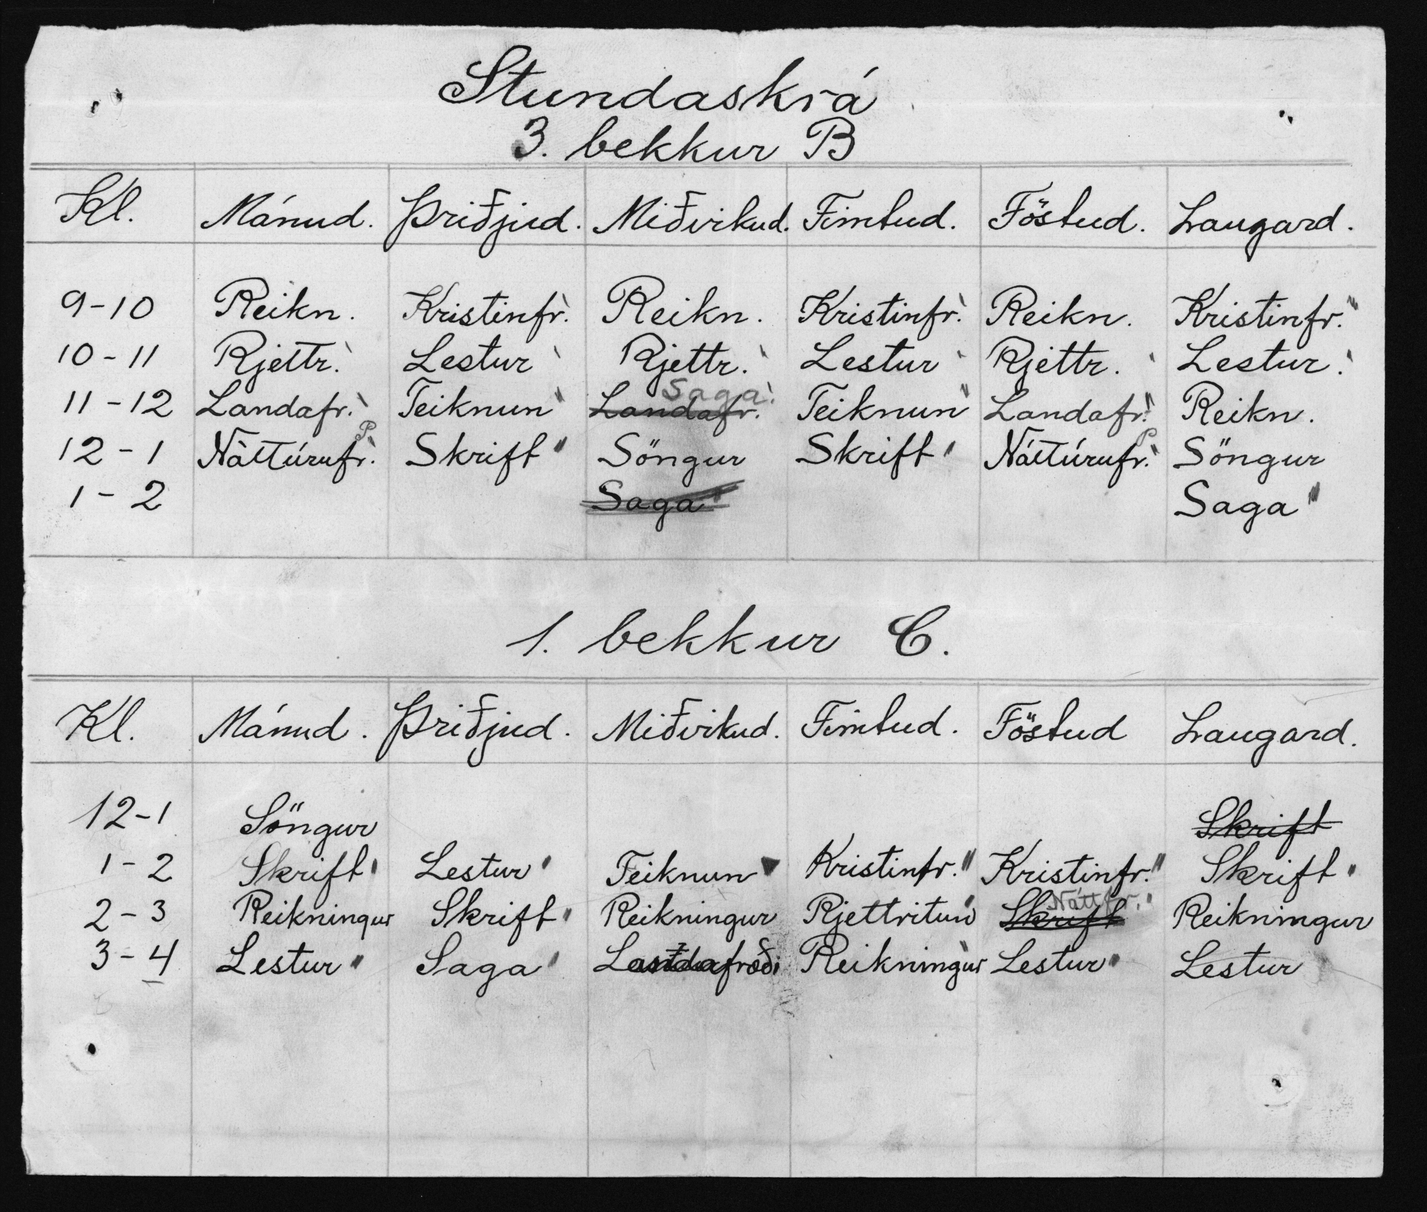 Stundaskrá
3. bekkur B
Kl. Mánud. Þriðjud. Miðvikud. Fimtud. Föstud. Laugard.
9-10 Reikn. Kristinfr. Reikn. Kristinfr. Reikn. Kristinfr.
10-11 Rjettr. Lestur Rjettr. Lestur Rjettr. Lestur
Saga
11-12 Landafr. Teiknun Landafr. Teiknun Landafr. Reikn.
P P
12-1 Náttúrufr. Skrift Söngur Skrift Náttúrufr. Söngur
1-2 Saga Saga
1. bekkur C.
Kl. Mánud. Þriðjud. Miðvikud. Fimtud. Föstud Laugard.
12-1 Söngur Skrift
1-2 Skrift Lestur Teiknun Kristinfr. Kristinfr. Skrift
Náttfr.
2-3 Reikningur Skrift Reikningur Rjettritun Skrift Reikningur
3-4 Lestur Saga Reikningur Lestur Lestur